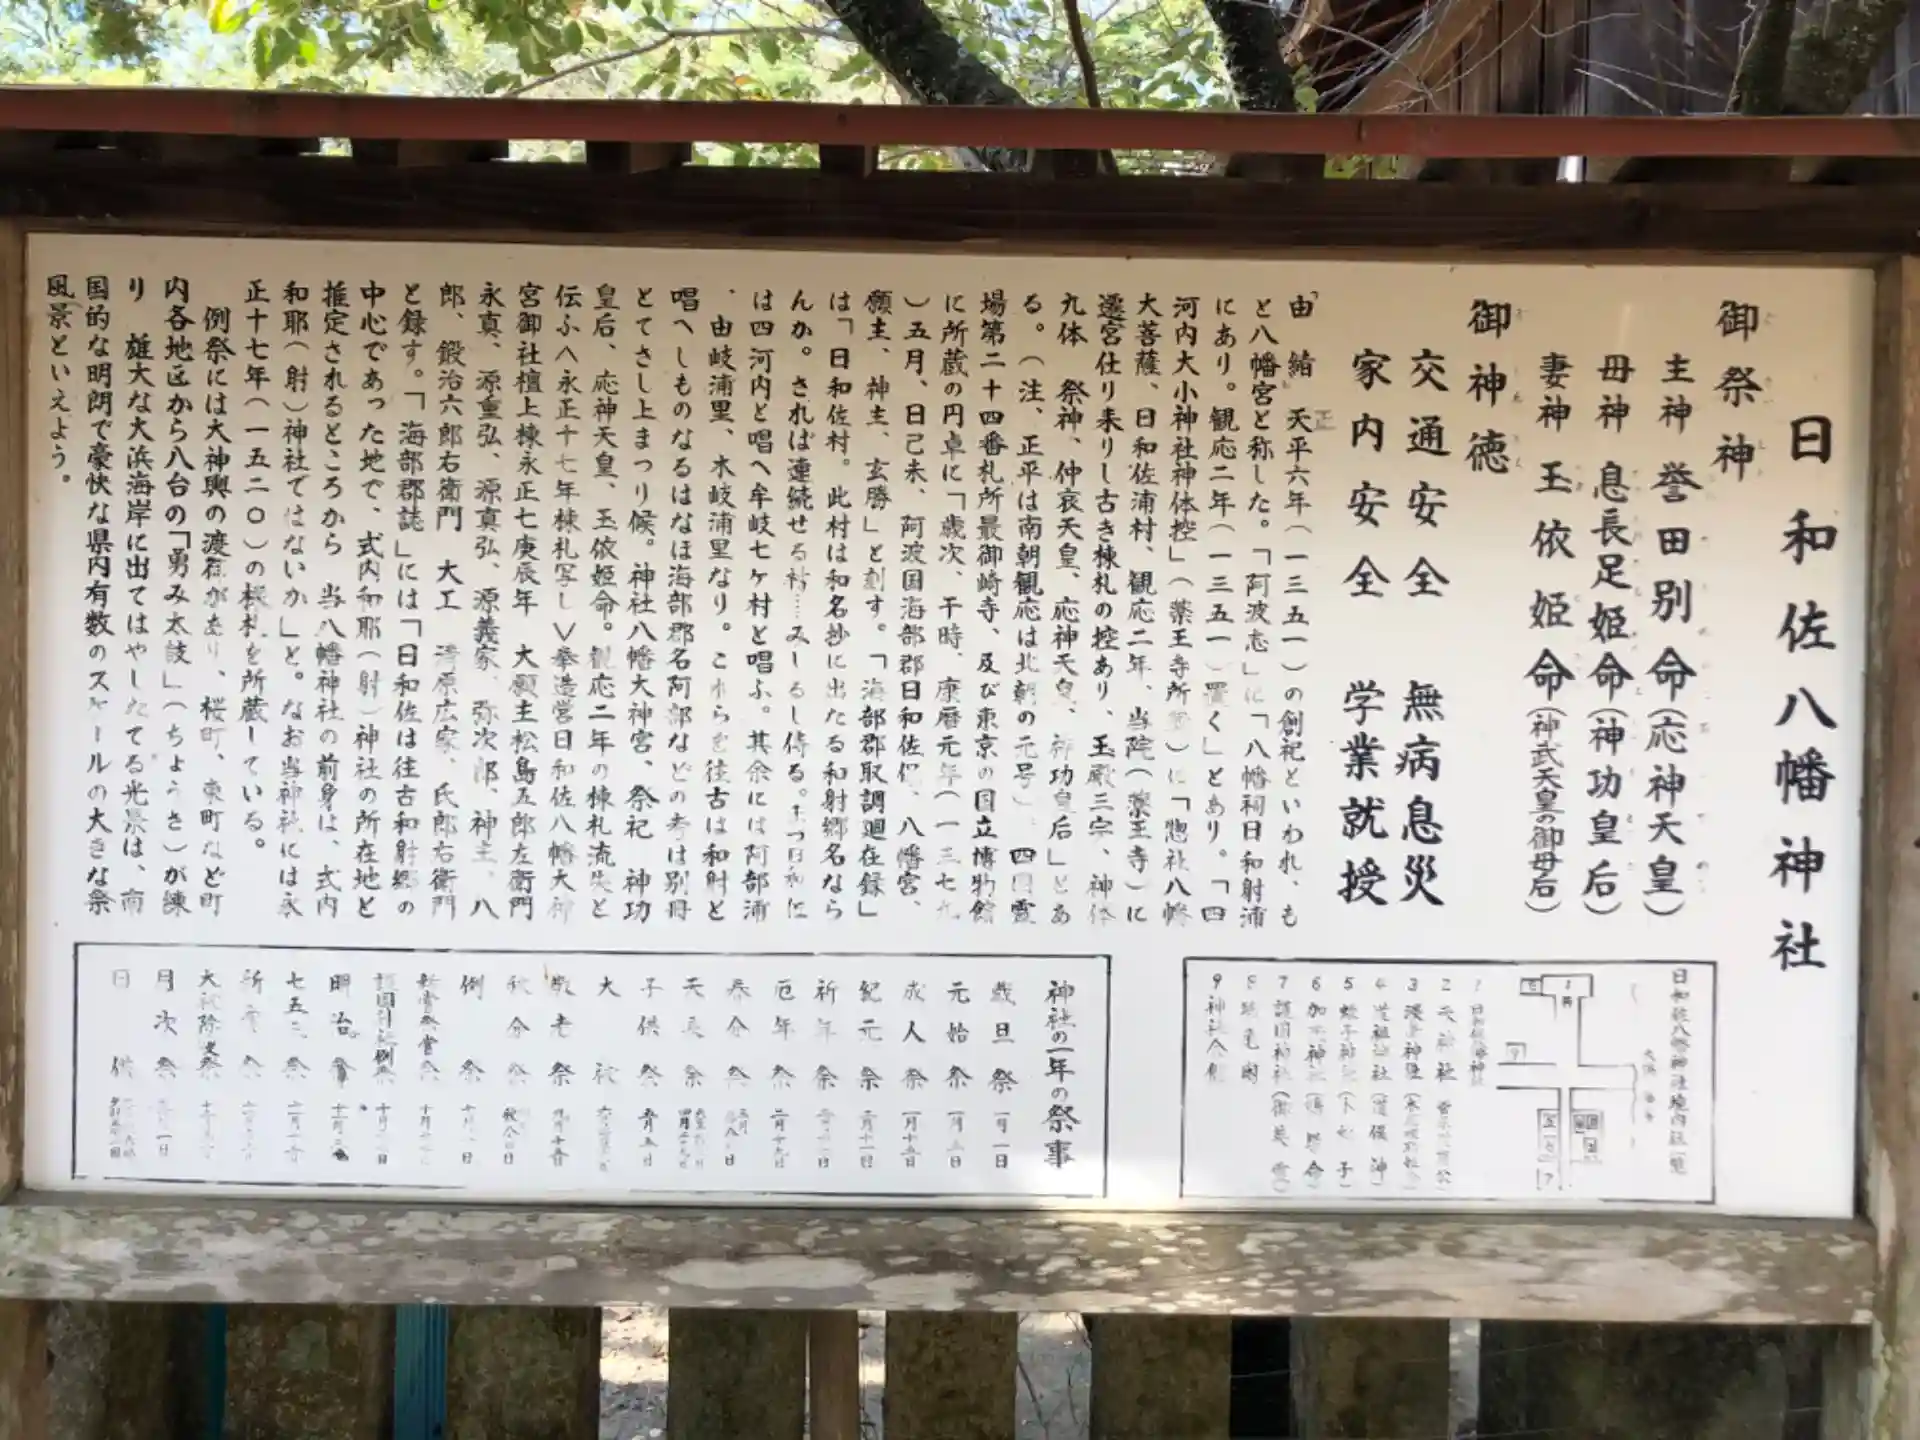 日和佐八幡神社
御祭神
主神 誉田別命(応神天皇)
母神 息長足姫命(神功皇后)
妻神 玉依姫命(神武天皇の御母后)
御神徳
交通安全 無病息災
家内安全 学業就授
由緒 天平六年(一三五一)の創祀といわれ、も
正
と八幡宮と称した。「阿波志」に「八幡祠日和射浦
にあり。観応二年(一三五一)置く」とあり。「四
河内大小神社神体控」(薬王寺所蔵)に「惣社八幡
大菩薩、日和佐浦村、観応二年、当院(薬王寺)に
遷宮仕り来りし古き棟札の控あり、玉殿三宇、神体
九体 祭神、仲哀天皇、応神天皇、神功皇后」とあ
る。(注、正平は南朝観応は北朝の元号)、四国霊
場第二十四番札所最御崎寺、及び東京の国立博物館
に所蔵の円卓に「歳次、干時、康暦元年(一三七九
)五月、日己未、阿波国海部郡日和佐保、八幡宮、
願主、神主、玄勝」と刻す。「海部郡取調廻在録」
は「日和佐村。此村は和名抄に出たる和射郷名なら
んか。されば連続せる村…みしるし侍る。
は四河内と唱へ牟岐七ケ村と唱ふ。其余には阿部浦
、由岐浦里、木岐浦里なり。これらを往古は和射と
唱へしものなるはなほ海部郡名阿部などの考は別冊
とてさし上まつり候。神社八幡大神宮、祭祀 神功
皇后、応神天皇、玉依姫命。観応二年の棟札流失と
伝ふへ永正十七年棟札写し∨奉造営日和佐八幡大神
宮御社檀上棟永正七庚辰年 大願主松島五郎左衛門
永真、源重弘、源真弘、源義家、弥次郎、神主、八
郎、鍛治六郎右衛門 大工 清原広家、氏郎右衛門
と録す。「海部郡誌」には「日和佐は往古和射郷の
中心であった地で、式内和耶(射)神社の所在地と
推定されるところから 当八幡神社の前身は、式内
和耶(射)神社ではないか」と。なお当神社には永
正十七年(一五二〇)の棟札を所蔵している。
例祭には大神輿の渡御があり、桜町、東町など町
内各地区から八台の「勇み太鼓」(ちょうさ)が練
り 雄大な大浜海岸に出てはやしたてる光景は、南
国的な明朗で豪快な県内有数のスケールの大きな祭
風景といえよう。
日和佐八幡神社境内社一覧
1 日和佐八幡神社
2 天神社
3
4 道祖神社(道俣神)
5 蛭子神社
6
7 護国神社(御英霊)
8
9 神社会館
神社の一年の祭事
歳旦祭 一月一日
元始祭 一月三日
成人祭 一月十五日
紀元祭 二月十一日
祈年祭
厄年祭
春分祭
天長祭 四月二十九日
子供祭 五月五日
大祓
敬老祭 九月十五日
秋分祭 秋分の日
例祭
新嘗祭
護国神社例祭
明治祭 十一月三日
七五三祭
大祓除夜祭
月次祭
日供